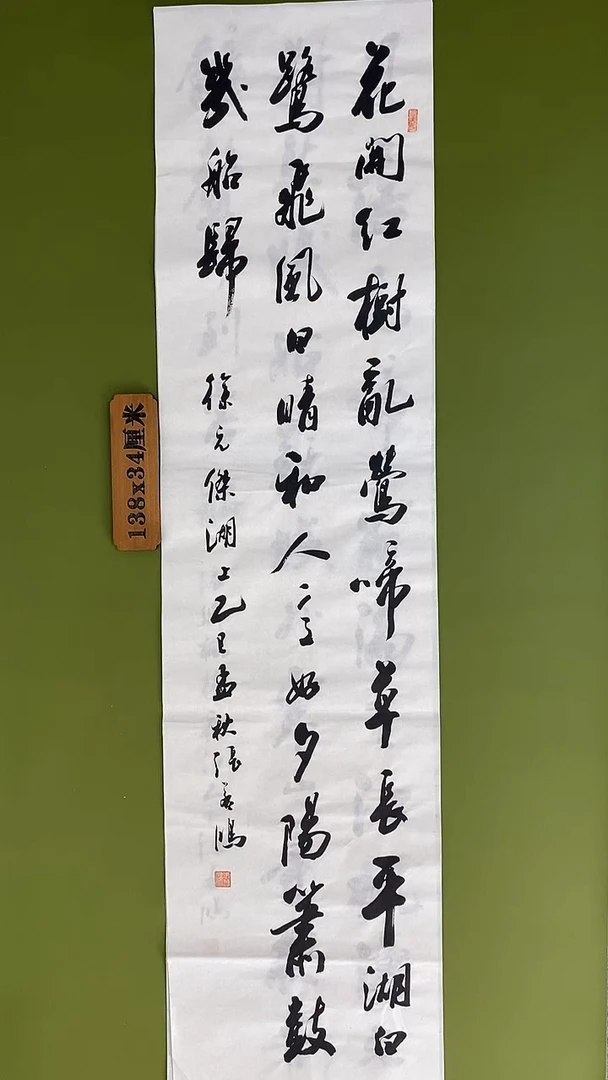 花開紅樹亂鶯啼草長平湖白
鷺飛風日晴和人意好夕陽簫鼓
幾船歸
徐元傑湖上乙巳孟秋張鴻
138x34厘米